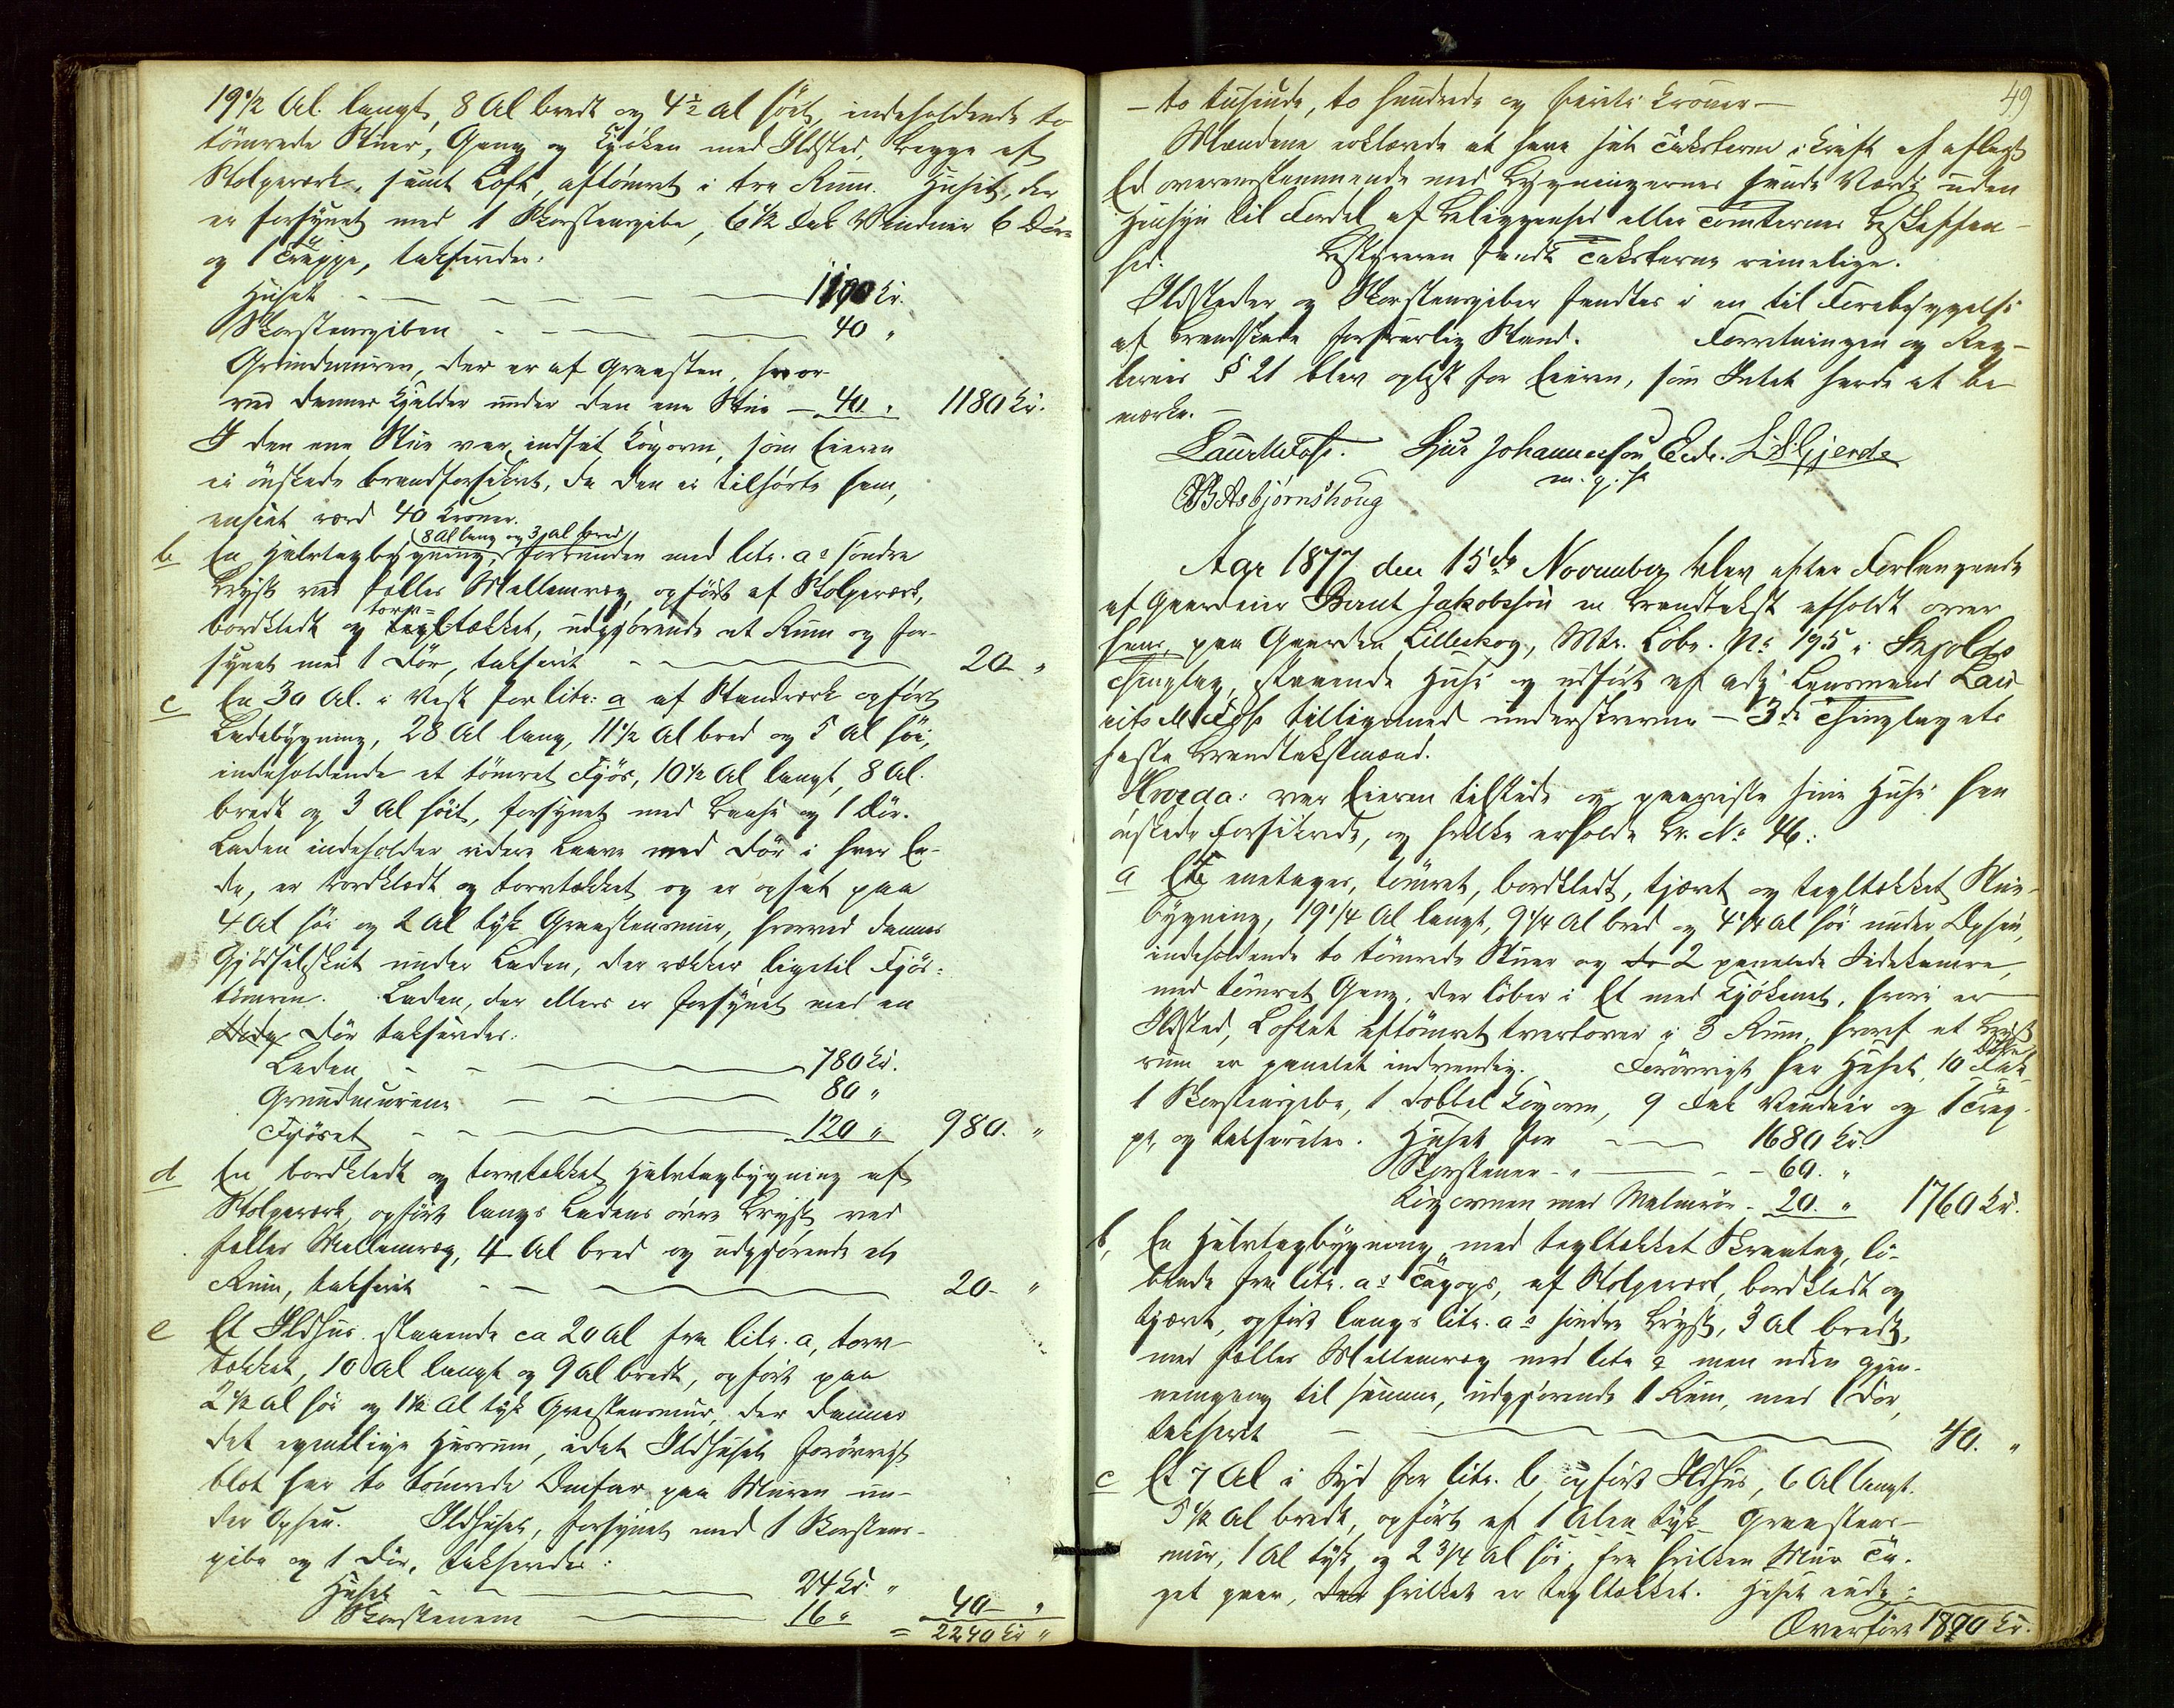 19 1/2 Al. langt, 8 Al bredt og 4 1/2 Al høit, indeholdende to
tømrede Stuer, Gang og Kjøkken med Ildsted, begge af
Stolpeværk, samt Loft, aftømret i tre Rum. Huset, der
er forsynet med 1 Skorstenspibe, 6 1/2 Fak Vinduer 6 Døre
og 1 Trappe, takseredes:
Huset - - - 1100 Kr.
Skorstenspiben - - - 40 "
Grundmuren, der er af Graasten, hvor-
ved dannes Kjelder under den ene Stue - 40. " 1180 Kr.
I den ene Stue var indsat Kogovn, som Eieren
ei ønskede brandforsikret, da den ei tilhørte ham,
anseet værd 40 Kroner.
b En Halvtagbygning, (8 Al lang og 3 Al bred) forbunden med litr. a's søndre
Bryst ved fælles Mellemvæg, opført af Stolpeværk,
bordklædt og torv-tækket, udgjørende et Rum og for-
synet med 1 Dør, takseret - - - 20 "
c En 30 Al. i Vest for litr. a af Standværk opført
Ladebygning, 28 Al lang, 11 1/2 Al bred og 5 Al høi,
indeholdende et tømret Fjøs, 10 1/2 Al langt, 8 Al.
bredt og 3 Al høit, forsynet med Baase og 1 Dør.
Laden indeholder videre Laave med Dør i hver En-
de, er bordklædt og torvtækket og er opsat paa
4 Al høi og 2 Al tyk Graastensmur, hvorved dannes
Gjødselskut under Laden, der rækker ligetil Fjøs-
tømren. Laden, der ellers er forsynet med en
Dør takseredes:
Laden - - - 780 Kr.
Grundmurene - - - 80 "
Fjøset - - - 120 " 980. "
d En bordklædt og torvtækket Halvtagbygning af
Stolpeværk, opført langs Ladens øvre Bryst ved
fælles Mellemvæg, 4 Al bred og udgjørende et
Rum, takseret - - - 20- "
e Et Ildhus staaende ca 20 Al fra litr. a, torv-
tækket, 10 Al langt og 9 Al bredt, opført paa
2 1/2 Al høi og 1 1/2 Al tyk Graastensmur, der danner
det egentlige Husrum, idet Ildhuset forøvrigt
blot har to tømrede Omfar paa Muren un-
der Opsen. Ildhuset, forsynet med 1 Skorstens-
pibe og 1 Dør, takseredes:
Huset - - - 24 Kr. "
Skorstenen - - - 16 " 40- "
= 2240 Kr "
49
- to tusinde, to hundrede og førti Kroner -
Mændene erklærede at have sat Taksterne i Kraft af aflagt
Ed overensstemmende med Bygningernes sande Værdi uden
Hensyn til Fordel af Beliggenhed eller Tomternes Beskaffen-
hed. Bestyreren fandt Taksterne rimelige.
Ildsteder og Skorstenspiber fandtes i en til Forebyggelse
af Brandskade forsvarlig Stand. Forretningen og Reg-
lernes § 21 blev oplæst for Eieren, som Intet havde at be-
mærke. -
Laur. M. Tofte. Sjur Johannessøn Eide. L. S. Gjerde
m. p. P.
B Asbjørnshoug
Aar 1877 den 15de November blev efter Forlangende
af Gaardeier Bernt Jakobssøn en Brandtakst afholdt over
hans, paa Gaarden Lilleskog, Mtr. Løbe. No 195 i Skjolds
Thinglag, staaende Huse og udført af adj. Lensmand Lau-
rits M Tofte tilligemed underskrevne - 3de Thinglagets
faste Brandtakstmænd.
Hvorda: var Eieren tilstede og paaviste sine Huse han
ønskede forsikrede, og hvilke erholdt Br. No 46:
a En enetages, tømret, bordklædt, tjæret og tegltækket Stue-
bygning, 19 1/4 Al langt, 9 1/4 Al bred og 4 1/4 Al høi under Opsen,
indeholdende to tømrede Stuer og 2 panelede Sidekamre,
med tømret Gang, der løber i Et med Kjøkkenet, hvori er
Ildsted, Loftet aftømret tvertover i 3 Rum, hvoraf et Bryst-
rum er panelet indvendig. Forøvrigt har Huset, 10 Døre
1 Skorstenspibe, 1 dobbel Kogovn, 9 Fak Vinduer og 1 Trap-
pe, og takseredes. Huset for - - 1680 Kr.
Skorstenen - " - - 60. "
Kogeovnen med Malmrør - 20. " 1760 Kr.
b, En Halvtagbygning med tegltækket Skraatag, lø-
bende fra litr. a's Tagops, af Stolpeværk, bordklædt og
tjæret, opført langs litr. a's søndre Bryst, 3 Al bredt,
med fælles Mellemvæg med litr a men uden Gjen-
nemgang til samme, udgjørende 1 Rum, med 1 Dør,
takseret - - - 40. "
c Et 7 Al i Syd for litr. b opført Ildhus, 6 Al langt.
5 1/2 Al bredt, opført af 1 Alen tyk Graastens-
mur, 1 Al tyk og 2 3/4 Al høi, fra hvilken Mur Ta-
get gaar, hvilket er tegltækket. Huset inde-
Overført 1800 Kr.